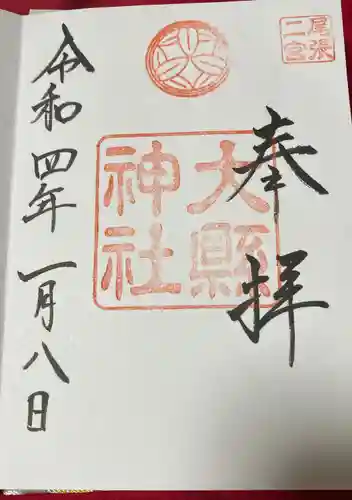 尾張
二宮
奉拝
大縣
神社
令和四年一月八日